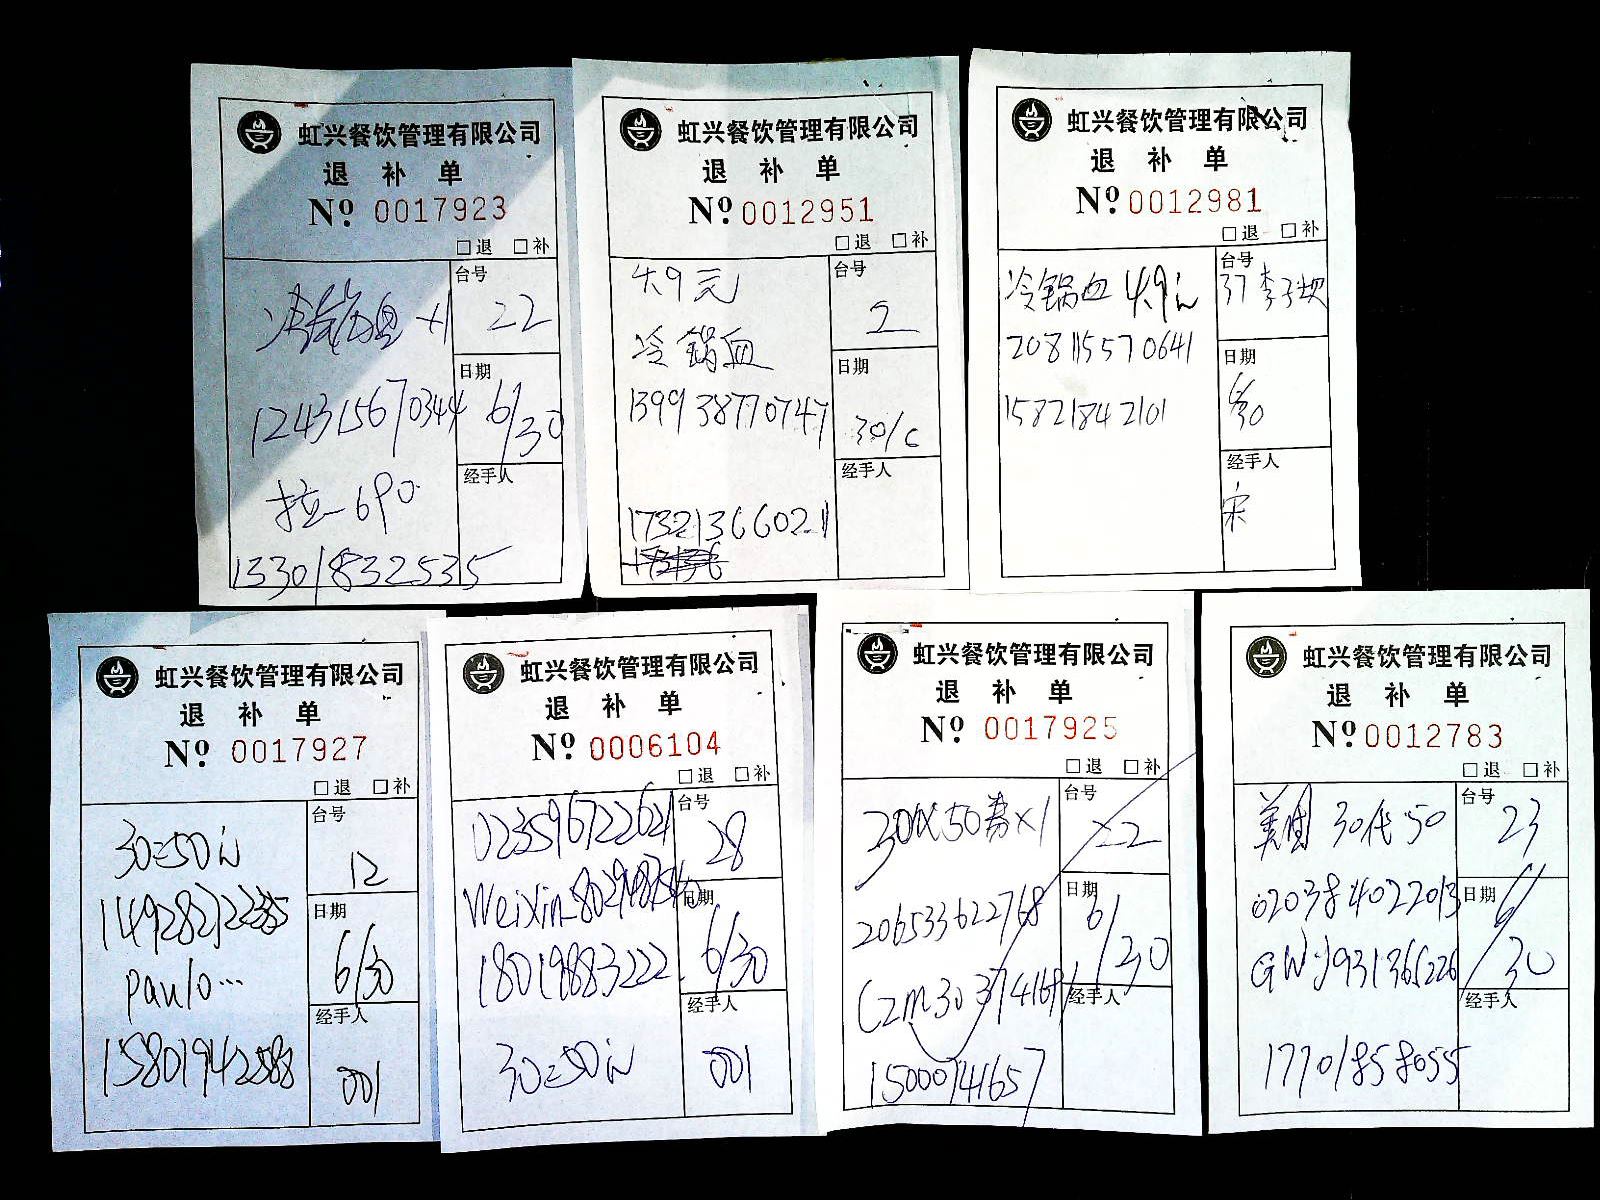 虹兴餐饮管理有限公司
退 补 单
Nº 0017923
□退 □补
冷锅血 x1
台号
22
日期
6/30
124315670344
经手人
拉 690
13301832535
虹兴餐饮管理有限公司
退 补 单
Nº 0012951
□退 □补
4.9元
台号
2
冷锅血
日期
139938770747
30/6
经手人
17321366021
虹兴餐饮管理有限公司
退 补 单
Nº 0012981
□退 □补
冷锅血 4.9元
台号
37 李子坝
208115570641
日期
6/30
15821842101
经手人
宋
虹兴餐饮管理有限公司
退 补 单
Nº 0017927
□退 □补
30=50元
台号
12
日期
6/30
paulo...
经手人
15801942588
001
虹兴餐饮管理有限公司
退 补 单
Nº 0006104
□退 □补
023596722621
台号
28
日期
18019883222
6/30
经手人
30=50元
001
虹兴餐饮管理有限公司
退 补 单
Nº 0017925
□退 □补
50券x1
台号
22
日期
6/30
206533622768
Czm30374169
经手人
15000741657
虹兴餐饮管理有限公司
退 补 单
Nº 0012783
□退 □补
美团 30代50
台号
23
020384022013
日期
6/30
GWJ931365226
经手人
17701858055